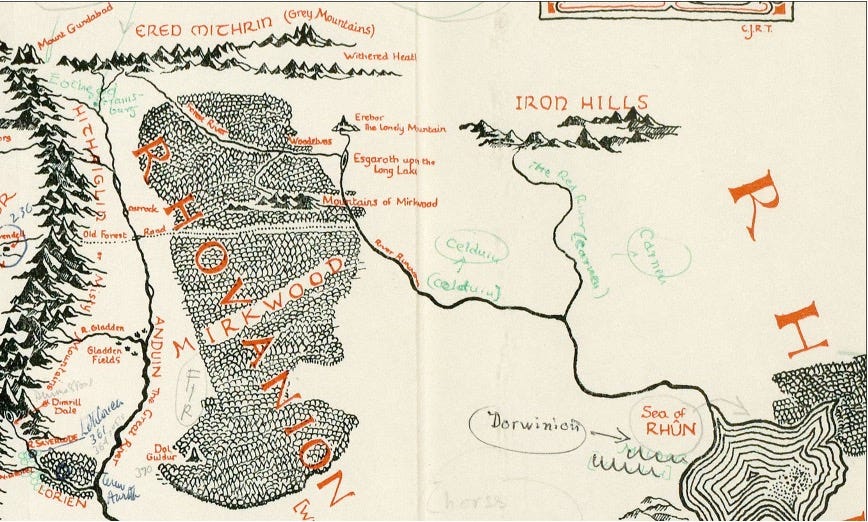 Mount Gundabad
ERED MITHRIN (Grey Mountains)
Withered Heath
C.J.R.T.
Forest River
Woodelves
Erebor
The Lonely Mountain
Esgaroth upon the
Long Lake
IRON HILLS
The Red River (Carnen)
Carnen
HITHAEGLIR or Misty Mountains
236
Carrock
Old Forest Road
Mountains of Mirkwood
River Running
Celduin
(Celduin)
RHOVANION
MIRKWOOD
R H
R. Gladden
Gladden
Fields
ANDUIN the Great River
Dimrill
Dale
R. SILVERLODE
LÓRIEN
FIR
Dol
Guldur
390
Dorwinion
Sea of
RHÛN
horse